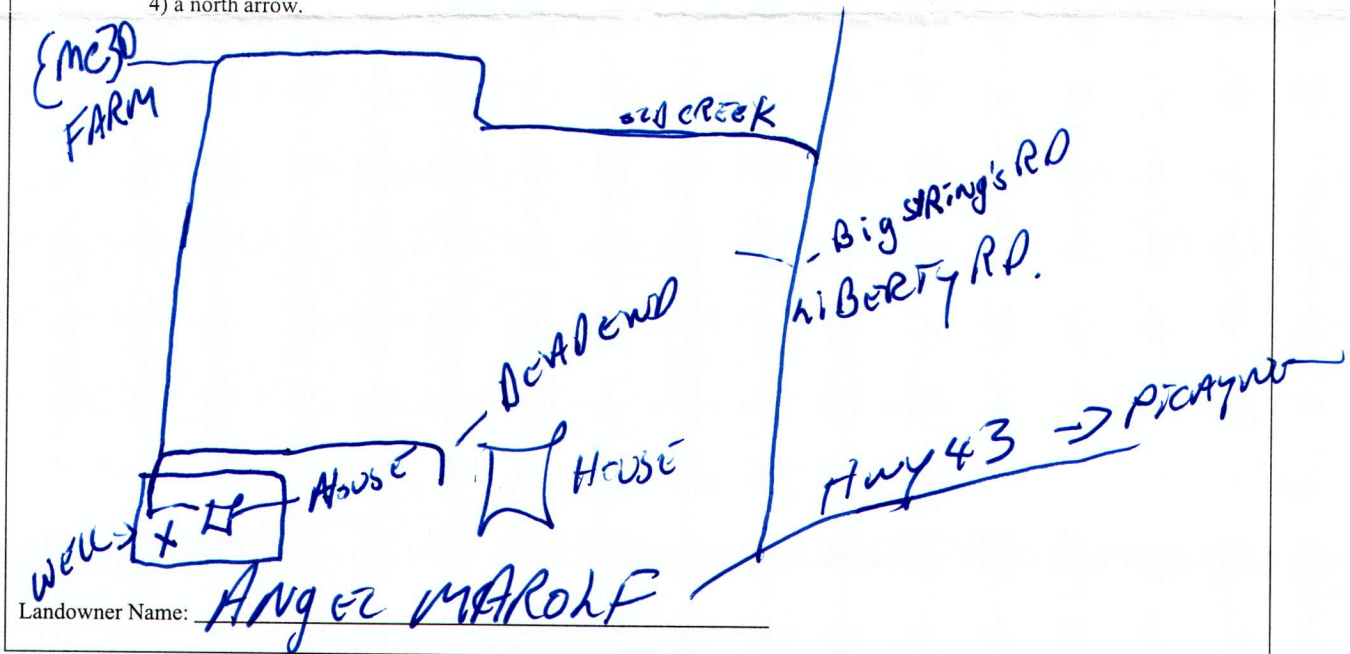 4) a north arrow.
FARM
OLD CREEK
Big SPRing's RD
LiBERTy RD.
DEAD END
HOUSE
HOUSE
Hwy 43 -> PICAYUNE
WELL -> X
Landowner Name: ANgEL MAROLF